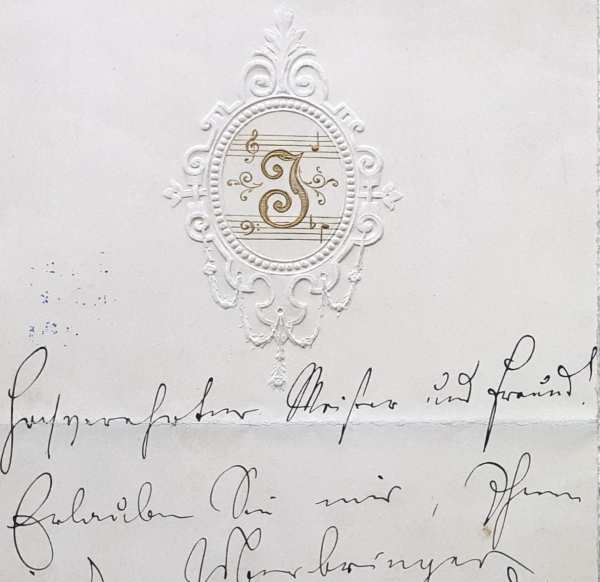 J
Hochverehrter Meister und Freund!
Erlauben Sie mir, Ihnen
Überbringer